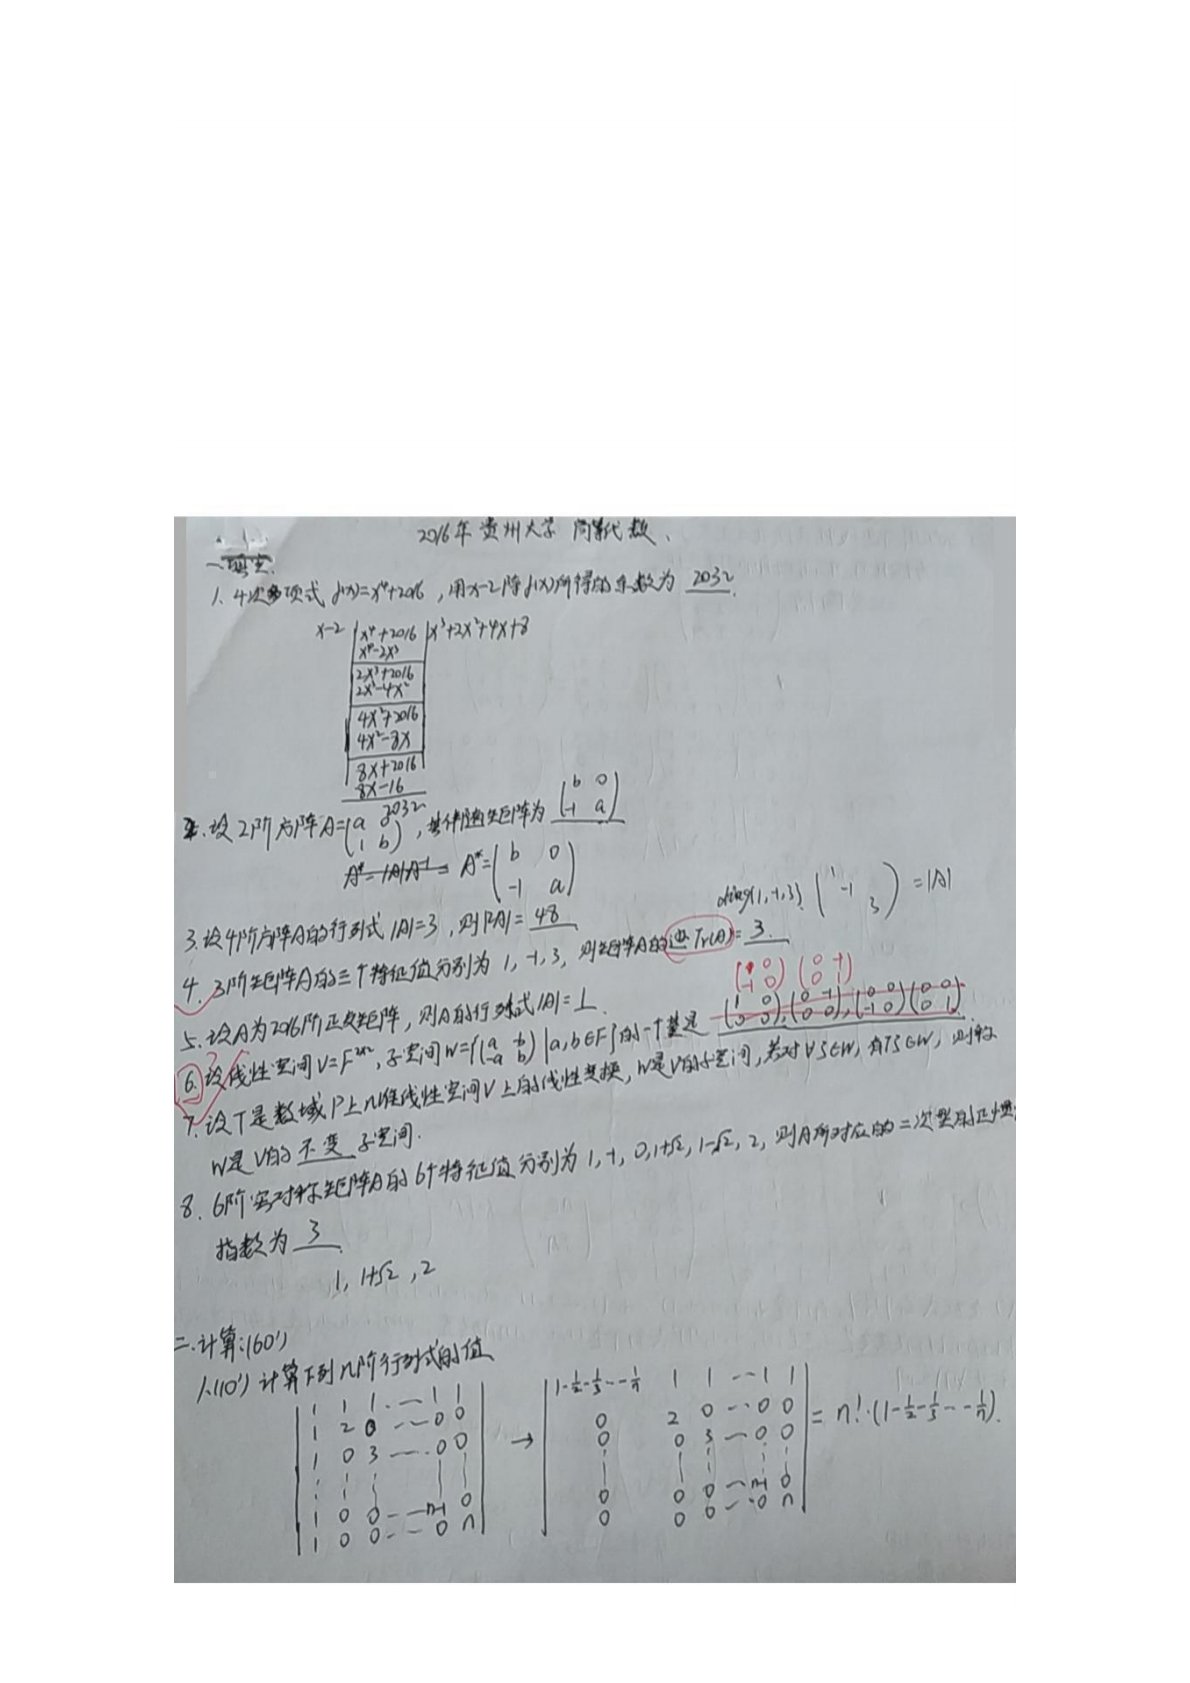 2016年 贵州大学 高等代数、
一.填空.
1. 4次多项式 f(x)=x⁴+2016 , 用x-2除f(x)所得的余数为 2032.
x-2 | x⁴+2016 | x³+2x²+4x+8
x⁴-2x³
2x³+2016
2x³-4x²
4x²+2016
4x²-8x
8x+2016
8x-16
2032
2.设2阶方阵A=(a 0
1 b) , 其伴随矩阵为 (b 0
-1 a)
A*=|A|A⁻¹= A*=(b 0
-1 a)
3.设4阶方阵A的行列式 |A|=3 , 则|2A|= 48
diag(1,-1,3). (1 -1 3) =|A|
4. 3阶矩阵A的三个特征值分别为 1, -1, 3, 则矩阵A的迹Tr(A)= 3.
(1 0
-1 0) (0 -1
0 1)
5.设A为2016阶正交矩阵, 则A的行列式|A|=1.
6.设线性空间V=F²ˣ², 子空间W={(a -b
-a b) | a,b∈F}的一个基是 (1 0
0 0), (0 -1
0 0), (0 0
-1 0) (0 0
0 1)
7.设T是数域P上n维线性空间V上的线性变换, W是V的子空间, 若对∀ξ∈W, 有Tξ∈W, 则称
W是V的 不变 子空间.
8. 6阶实对称矩阵A的6个特征值分别为 1, -1, 0, 1+√2, 1-√2, 2, 则A所对应的二次型的正惯
指数为 3.
1, 1+√2 , 2
二.计算:(60')
1.(10') 计算下列n阶行列式的值
| 1 1 1 … 1 1 | | 1-1/2-1/3-…-1/n 1 1 … 1 1 |
| 1 2 0 … 0 0 | | 0 2 0 … 0 0 |
| 1 0 3 … 0 0 | → | 0 0 3 … 0 0 | = n!·(1-1/2-1/3-…-1/n).
| ⋮ ⋮ ⋮ ⋮ ⋮ | | ⋮ ⋮ ⋮ ⋮ ⋮ |
| 1 0 0 … n-1 0 | | 0 0 0 … n-1 0 |
| 1 0 0 … 0 n | | 0 0 0 … 0 n |